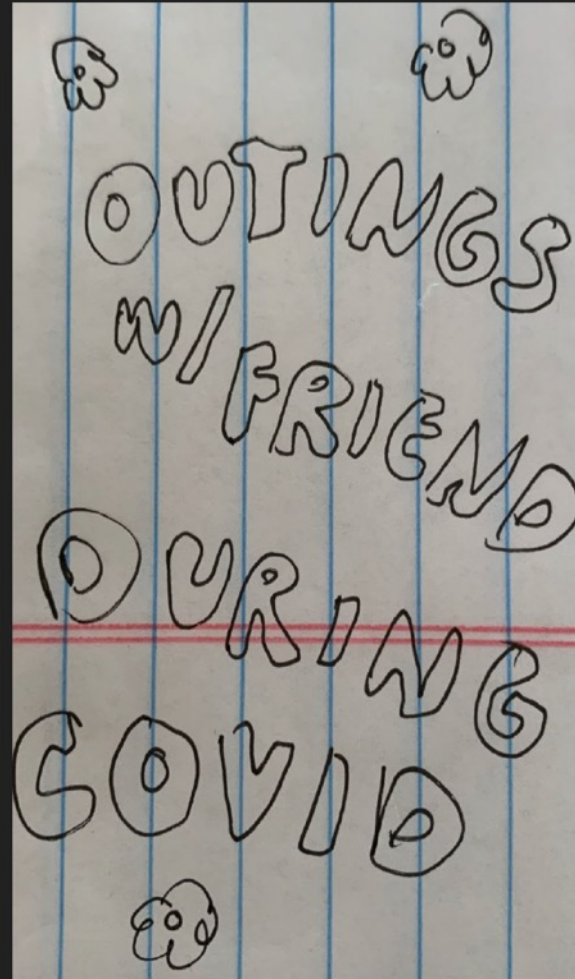 OUTINGS
W/FRIEND
DURING
COVID